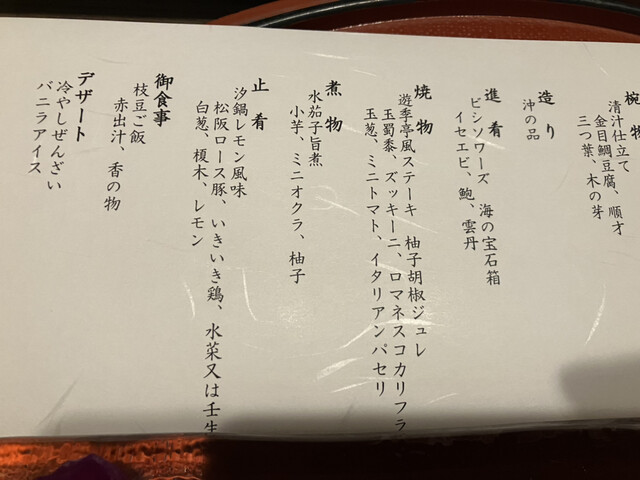 椀物
清汁仕立て
金目鯛豆腐、順才
三つ葉、木の芽
造り
沖の品
進肴
ビシソワーズ 海の宝石箱
イセエビ、鮑、雲丹
焼物
遊季亭風ステーキ 柚子胡椒ジュレ
玉蜀黍、ズッキーニ、ロマネスコカリフラ
玉葱、ミニトマト、イタリアンパセリ
煮物
水茄子旨煮
小芋、ミニオクラ、柚子
止肴
汐鍋レモン風味
松阪ロース豚、いきいき鶏、水菜又は壬生
白葱、榎木、レモン
御食事
枝豆ご飯
赤出汁、香の物
デザート
冷やしぜんざい
バニラアイス